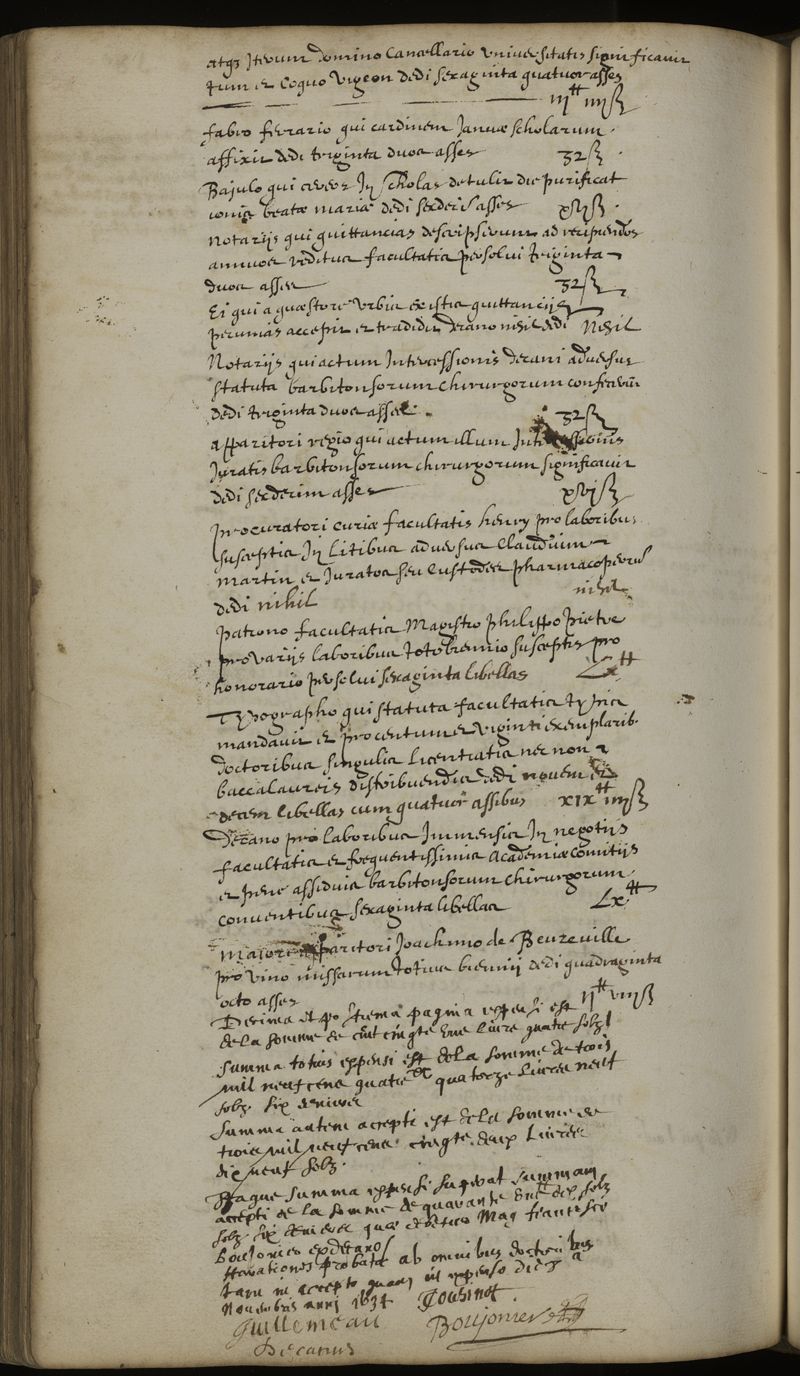 atq3 Iterum domino Cancellario universitatis significavit
tum et Coquo Vigeon dedi sexaginta quatuor asses
iii# iiiiß
fabro ferrario qui cardinem Januæ scholarum
affixit dedi triginta duos asses 32ß
Bajulo qui cereos In scholas detulit die purificat
ionis beatæ mariæ dedi sexdecis asses xviß
Notarijs qui quittancias descripserunt ad recipiendos
annuos reditus facultatis persolui triginta
duos asses 32ß
Ei qui a quæstore Urbis ex istis quittancijs
pecunias accepit et tradidit decano nihil dedi Nihil
Notarijs qui actum Intercessionis decani adversus
statuta barbitonsorum chirurgorum confecerunt
dedi triginta duos asses 32ß
apparitori regio qui actum illum Intercessionis
Juratis barbitonsorum chirurgorum significavit
dedi sexdecim asses xviß
procuratori curiæ facultatis henry pro laboribus
susceptis In Litibus adversus Claudium
martin et Juratos seu Custodes pharmacopeorum
dedi nihil nihil
patrono facultatis Magistro philippo pietre
pro varijs laboribus toto biennio susceptis pro
honorario persolui sexaginta libellas Lx#
Typographo qui statuta facultatis typis
mandavit et pro centum et viginti exemplarib.
doctoribus singulis Licentiatis nec non
baccalaureis distribuendis dedi novem et
decem libellas cum quatuor assibus xix# iiiiß
Decano pro laboribus Immensis In negotijs
facultatis et frequentissimis academiæ comitijs
et pene assiduis barbitonsorum chirurgorum
conventibus sexaginta libellas Lx#
Maiori apparitori Joachimo de Beuzeville
pro vino missarum totius biennij dedi quadraginta
octo asses ij# viiiß
Decima et postrema pagina expensi est
de la somme de cent cinqte une livre quatre solz
Summa totius expensi est de la somme de trois
mil neuf cens quatre xx quatorze livres neuf
solz six deniers
Summa autem accepti est de la somme de
trois mil neuf cens cinqte deux Livres
dix neuf solz.
Itaque summa expensi superat summam
accepti de la somme de quarante une# dix solz
solz six deniers quæ Mag francisco
Boujonier exdecano
Hæ rationes probatæ ab omnibus doctoribus
tam in accepto quam in expenso die
Novembris anni 1634 Cousinot.
Guillemeau Boujonier
Decanus